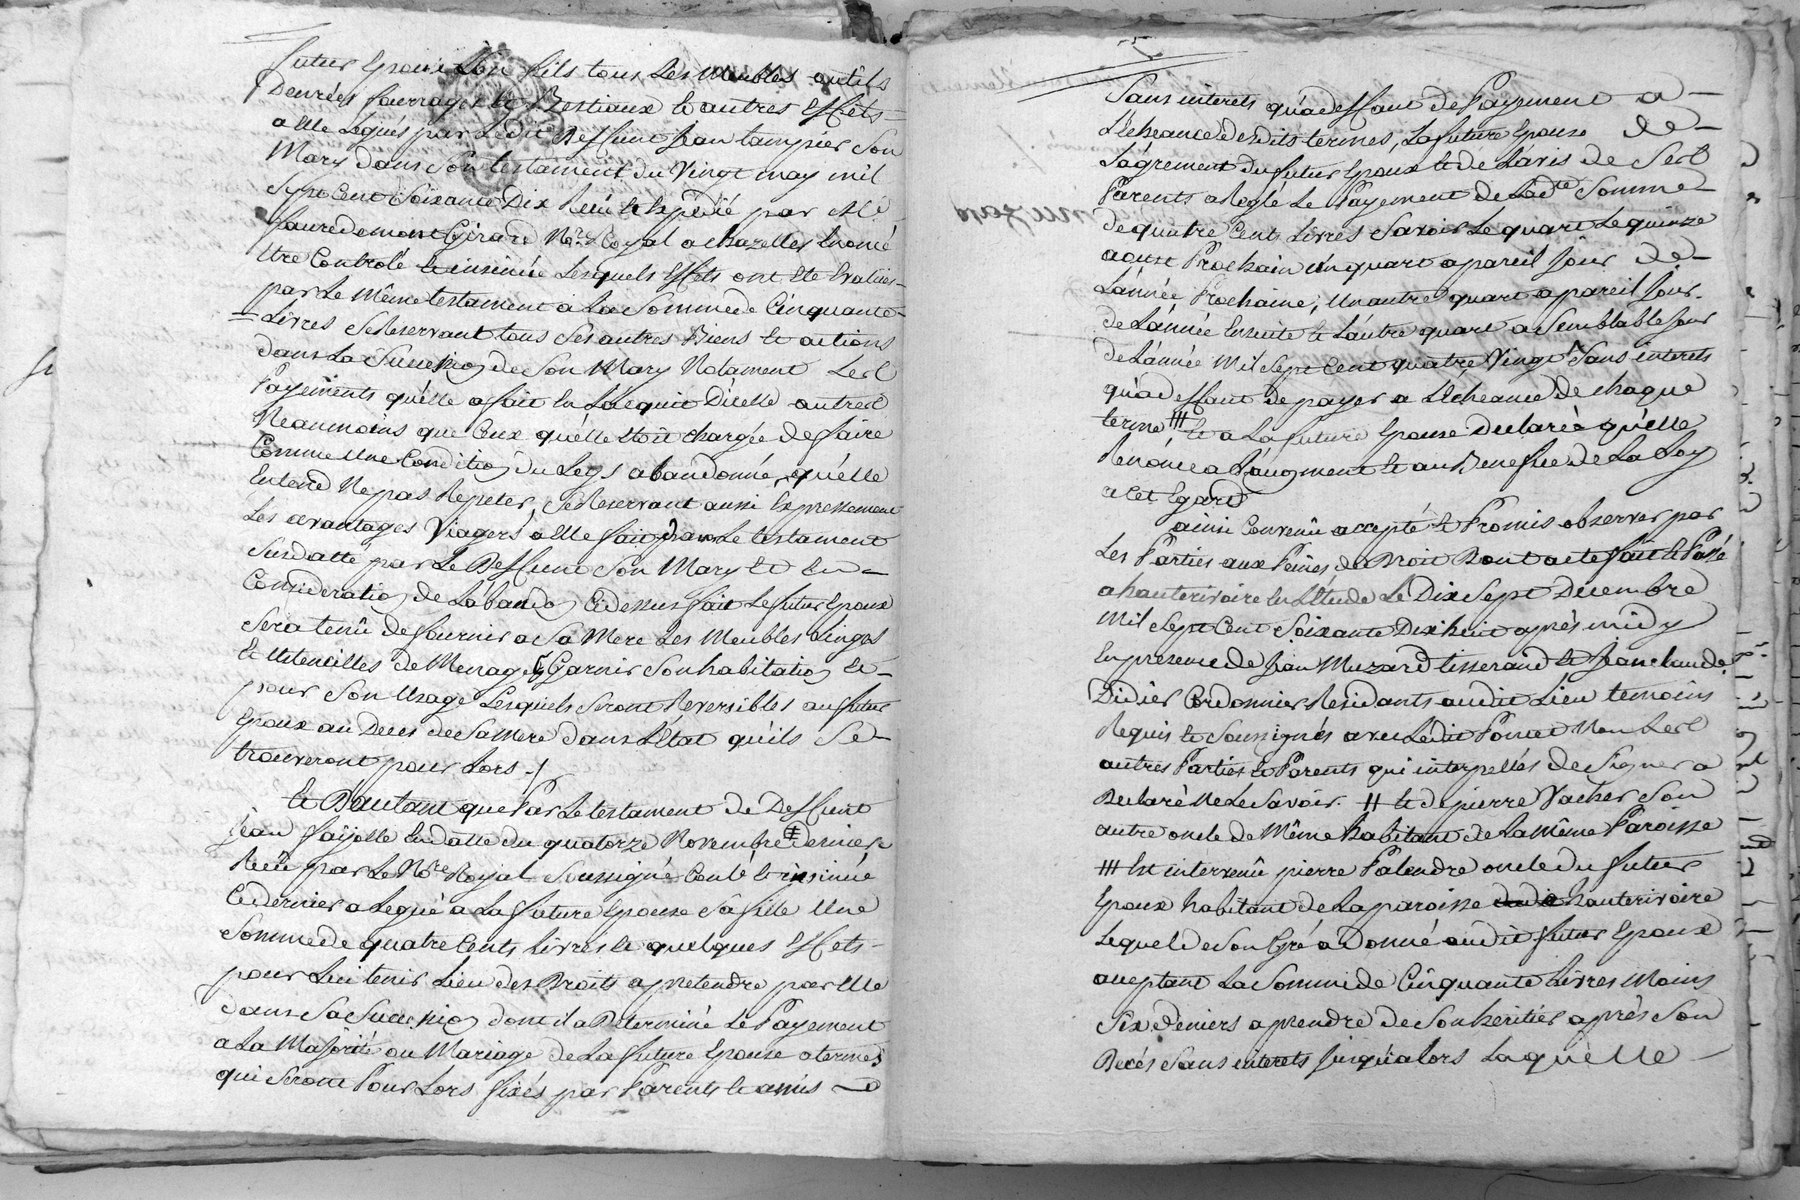 futur Epoux Son fils tous Les Meubles outils
Denrées fourrages et Bestiaux et autres Effets
a Elle Legués par Ledit Deffunt Jean tampier Son
Mary dans Son testament du Vingt may mil
Sept Cent Soixante Dix Reçu et Expedié par Me
fauredemont Girard Nre Royal a chazelles Enoncé
Etre Controlé et insinué Lesquels Effets ont Eté Evalués
par Le Même testament a La Somme de Cinquante
Livres Se Reservant tous Ses autres Biens et actions
dans La Succession de Son Mary Notament Les
Payements quélle a fait En Lacquit Dicelle autres
Neaumoins que Ceux quélle Etoit chargée de faire
Comme Une Condition du Legs abandonné, quélle
Entend Ne pas Repeter, Se Reservant aussi Expressement
Les avantages Viagers a Elle fait dans Le testament
Susdatté par Le Deffunt Son Mary et En
Consideration de Lábandon Cidessus fait Le futur Epoux
Sera tenû de fournir a Sa Mere Les Meubles Linges
Et Utencilles de Menage Garnir Son habitation Et
pour Son Usage Lesquels Seront Reversibles au futur
Epoux au Deces de Sa Mere dans L'État quéils Se
trouveront pour Lors ./
Et Dautant que Par Le testament de Deffunt
Jean faÿolle En datte du quatorze Novembre ‡ Dernier
Reçû par Le Nre Royal Soussigné Conlé et insinué
Ce dernier a Legué a La future Epouse Sa fille Une
Somme de quatre Cents Livres et quelques Effets
pour Lui tenir Lieu des Droits a pretendre par Elle
dans Sa Succession dont il a Determiné Le Payement
a La Majorité ou Mariage de La future Epouse a termes
qui Seront Pour Lors fixés par Parents et amis
Sans interets quá deffaut de Payement a
L'écheance desdits termes, La future Epouse de
Lágrement du futur Epoux et de Lávis de Ses
Parents a Reglé Le Payement de Ladte Somme
de quatre Cents Livres Savoir Le quart Le quinze
aoust Prochain Un quart a pareil Jour de
L'année Prochaine; Un autre quart a pareil Jour
de Lánnée Ensuite et Láutre quart a Semblable Jour
de Lánnée Mil Sept Cent quatre Vingt Sans interets
quá deffaut de payer a L'écheance de chaque
terme ||| et a La future Epouse Declaré quélle
Renonce a Láugment et au Beneffice de La Loy
a Cet Egard
ainsi Convenû accepté et Promis observer par
Les Parties aux Peines de Droit Dont acte fait et Passé
a hauterivoire En L'Étude Le Dix Sept Decembre
Mil Sept Cent Soixante Dix huit aprés midy
En presence de Jean Muzard tisserand et Jean claude
Didier Cordonnier Residants audit Lieu temoins
Requis et Soussignés avec Ledit Poncet Non Les
autres Parties et Parents qui interpellés de Signer a
Declaré Ne Le Savoir. || et de pierre Vacher Son
autre oncle de Même habitant de La Même Paroisse
||| Est intervenû pierre Palendre oncle du futur
Epoux habitant de La paroisse hauterivoire
Lequel de Son Gré a Donné audit futur Epoux
acceptant La Somme de Cinquante Livres Moins
Six Deniers a prendre de Son heritier aprés Son
Decés Sans interets Jusquálors Laquelle